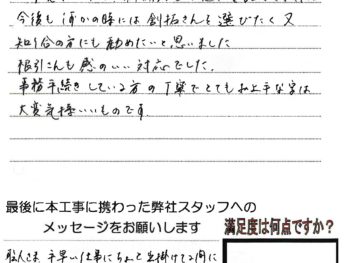 今後も何かの時には創拓さんを選びたく又
知り合の方にも勧めたいと思いました
根引さんも感のいい対応でした。
事務手続きしている方の丁寧でとてもお上手な字は
大変気持いいものです
最後に本工事に携わった弊社スタッフへの
メッセージをお願いします
満足度は何点ですか？
職人さま、手早い仕事に